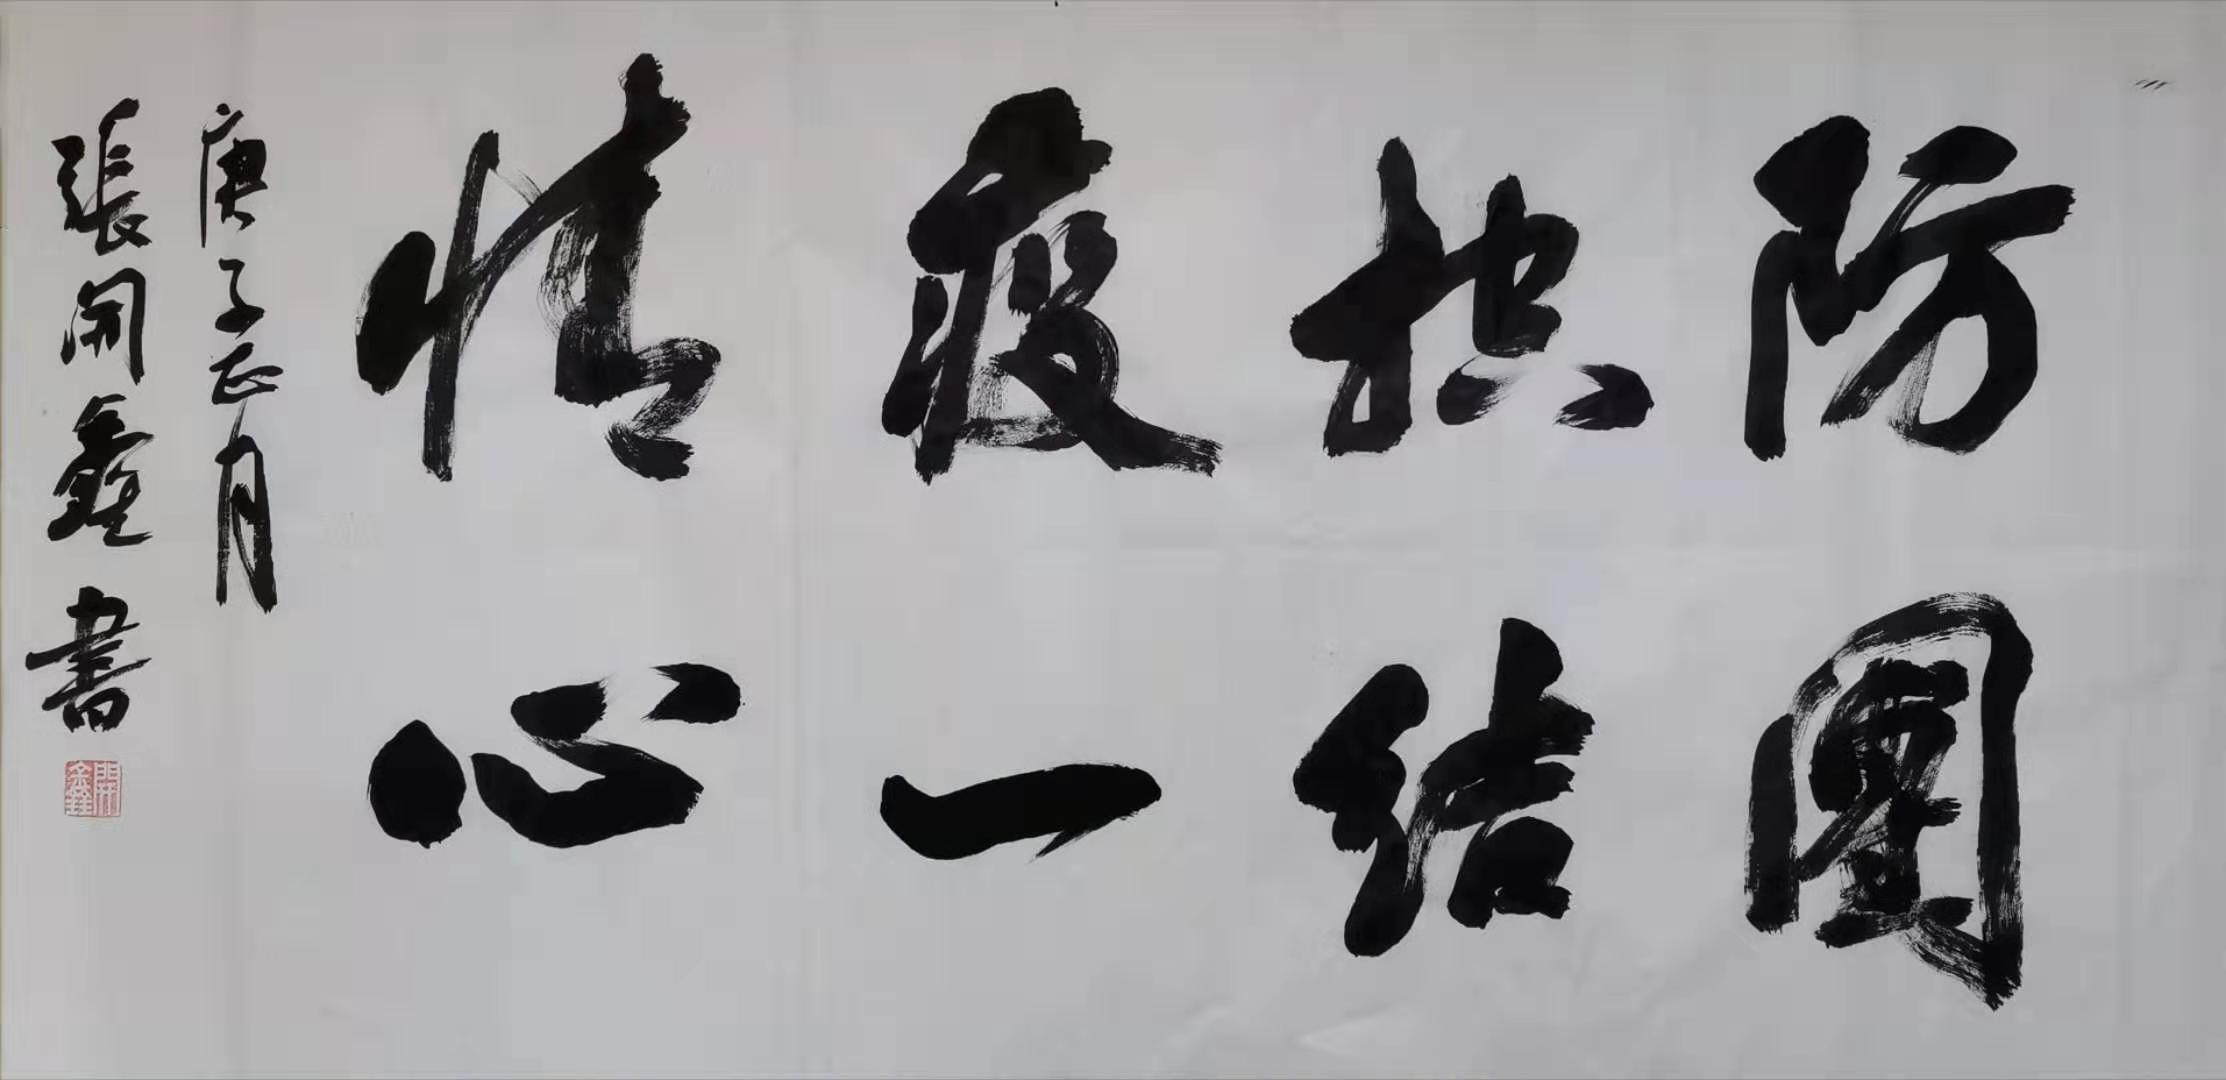 防控疫情
團結一心
庚子正月
張開鑫書
開鑫